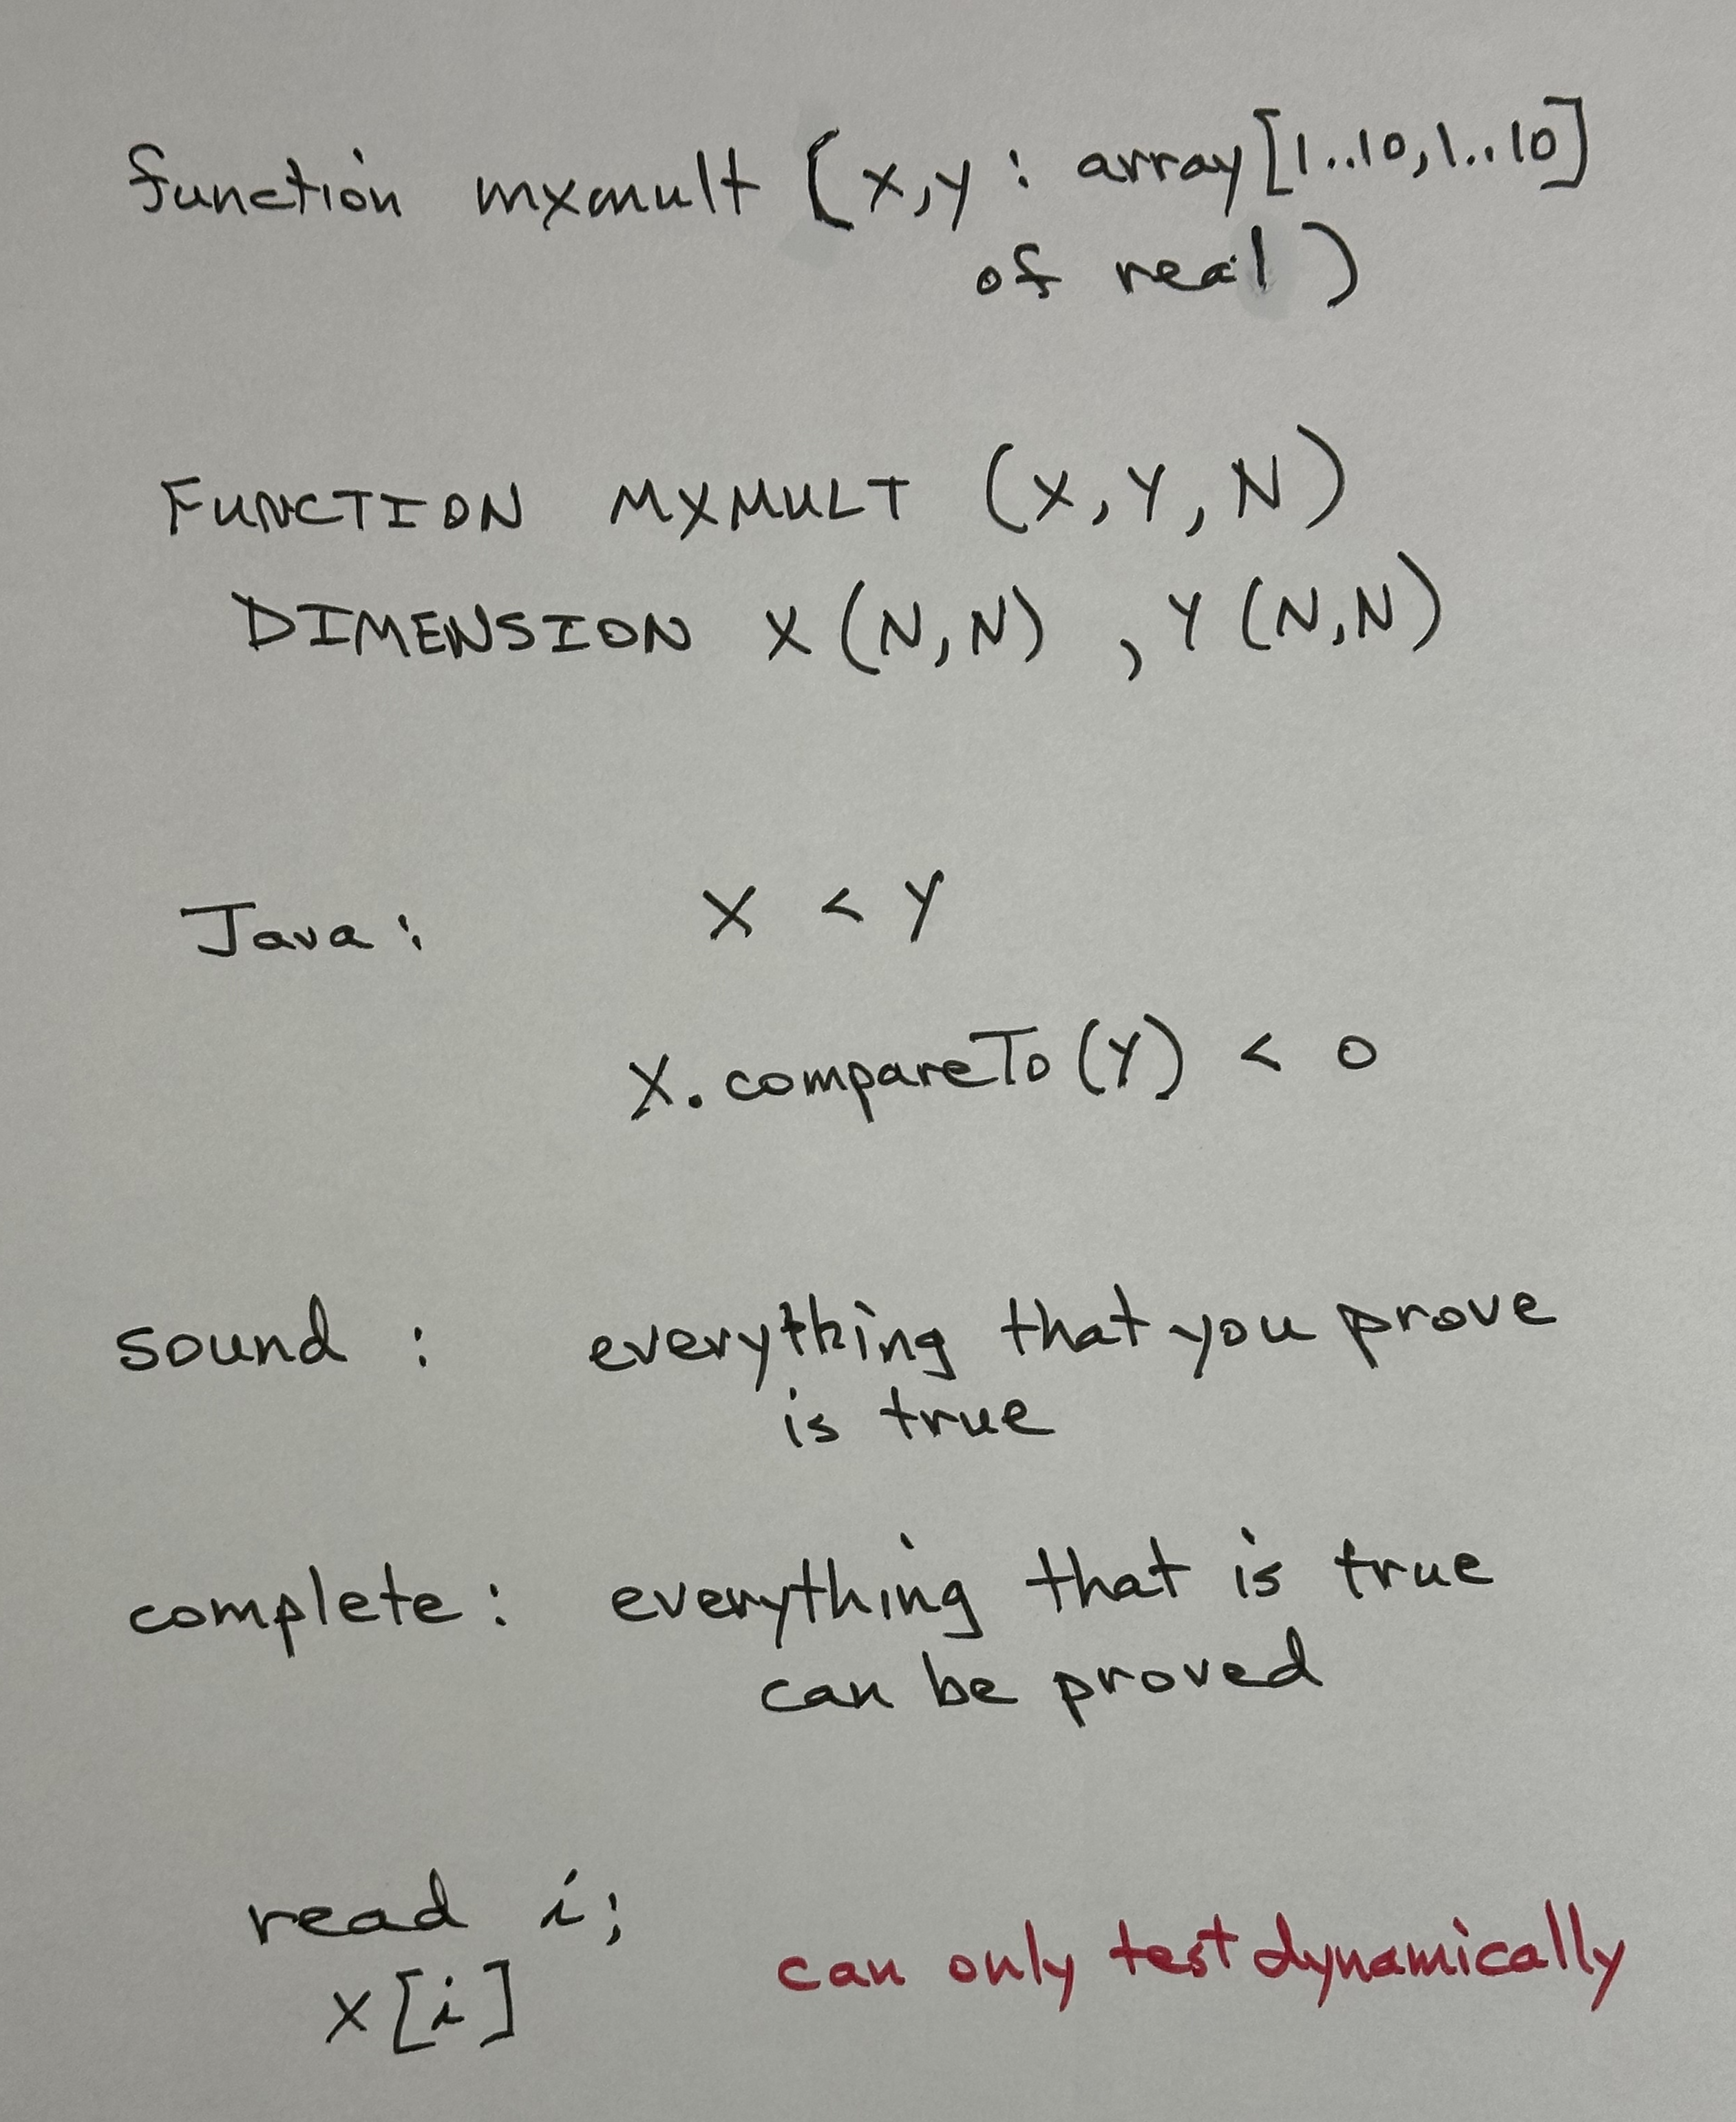 function mxmult (x,y : array[1..10,1..10]
of real)
FUNCTION MXMULT (X,Y,N)
DIMENSION X(N,N) , Y(N,N)
Java: X < Y
X.compareTo(Y) < 0
sound : everything that you prove
is true
complete: everything that is true
can be proved
read i;
x[i] can only test dynamically